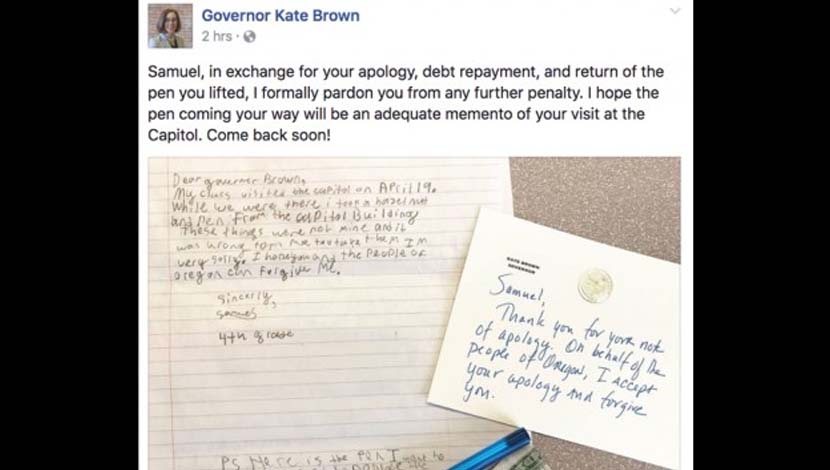 Governor Kate Brown
2 hrs ·
Samuel, in exchange for your apology, debt repayment, and return of the
pen you lifted, I formally pardon you from any further penalty. I hope the
pen coming your way will be an adequate memento of your visit at the
Capitol. Come back soon!
Dear governer Brown,
My class visited the capitol on April 19.
While we were there i took a hazel nut
and pen From the capitol Building
These things were not mine and it
was wrong form me to take them Im
very sorry. I hope you and the people of
oregon can forgive Me.
sincerly,
samuel
4th grade
PS Here is the pen I
KATE BROWN
GOVERNOR
Samuel,
Thank you for your note
of apology. On behalf of the
people of Oregon, I accept
your apology and forgive
you.